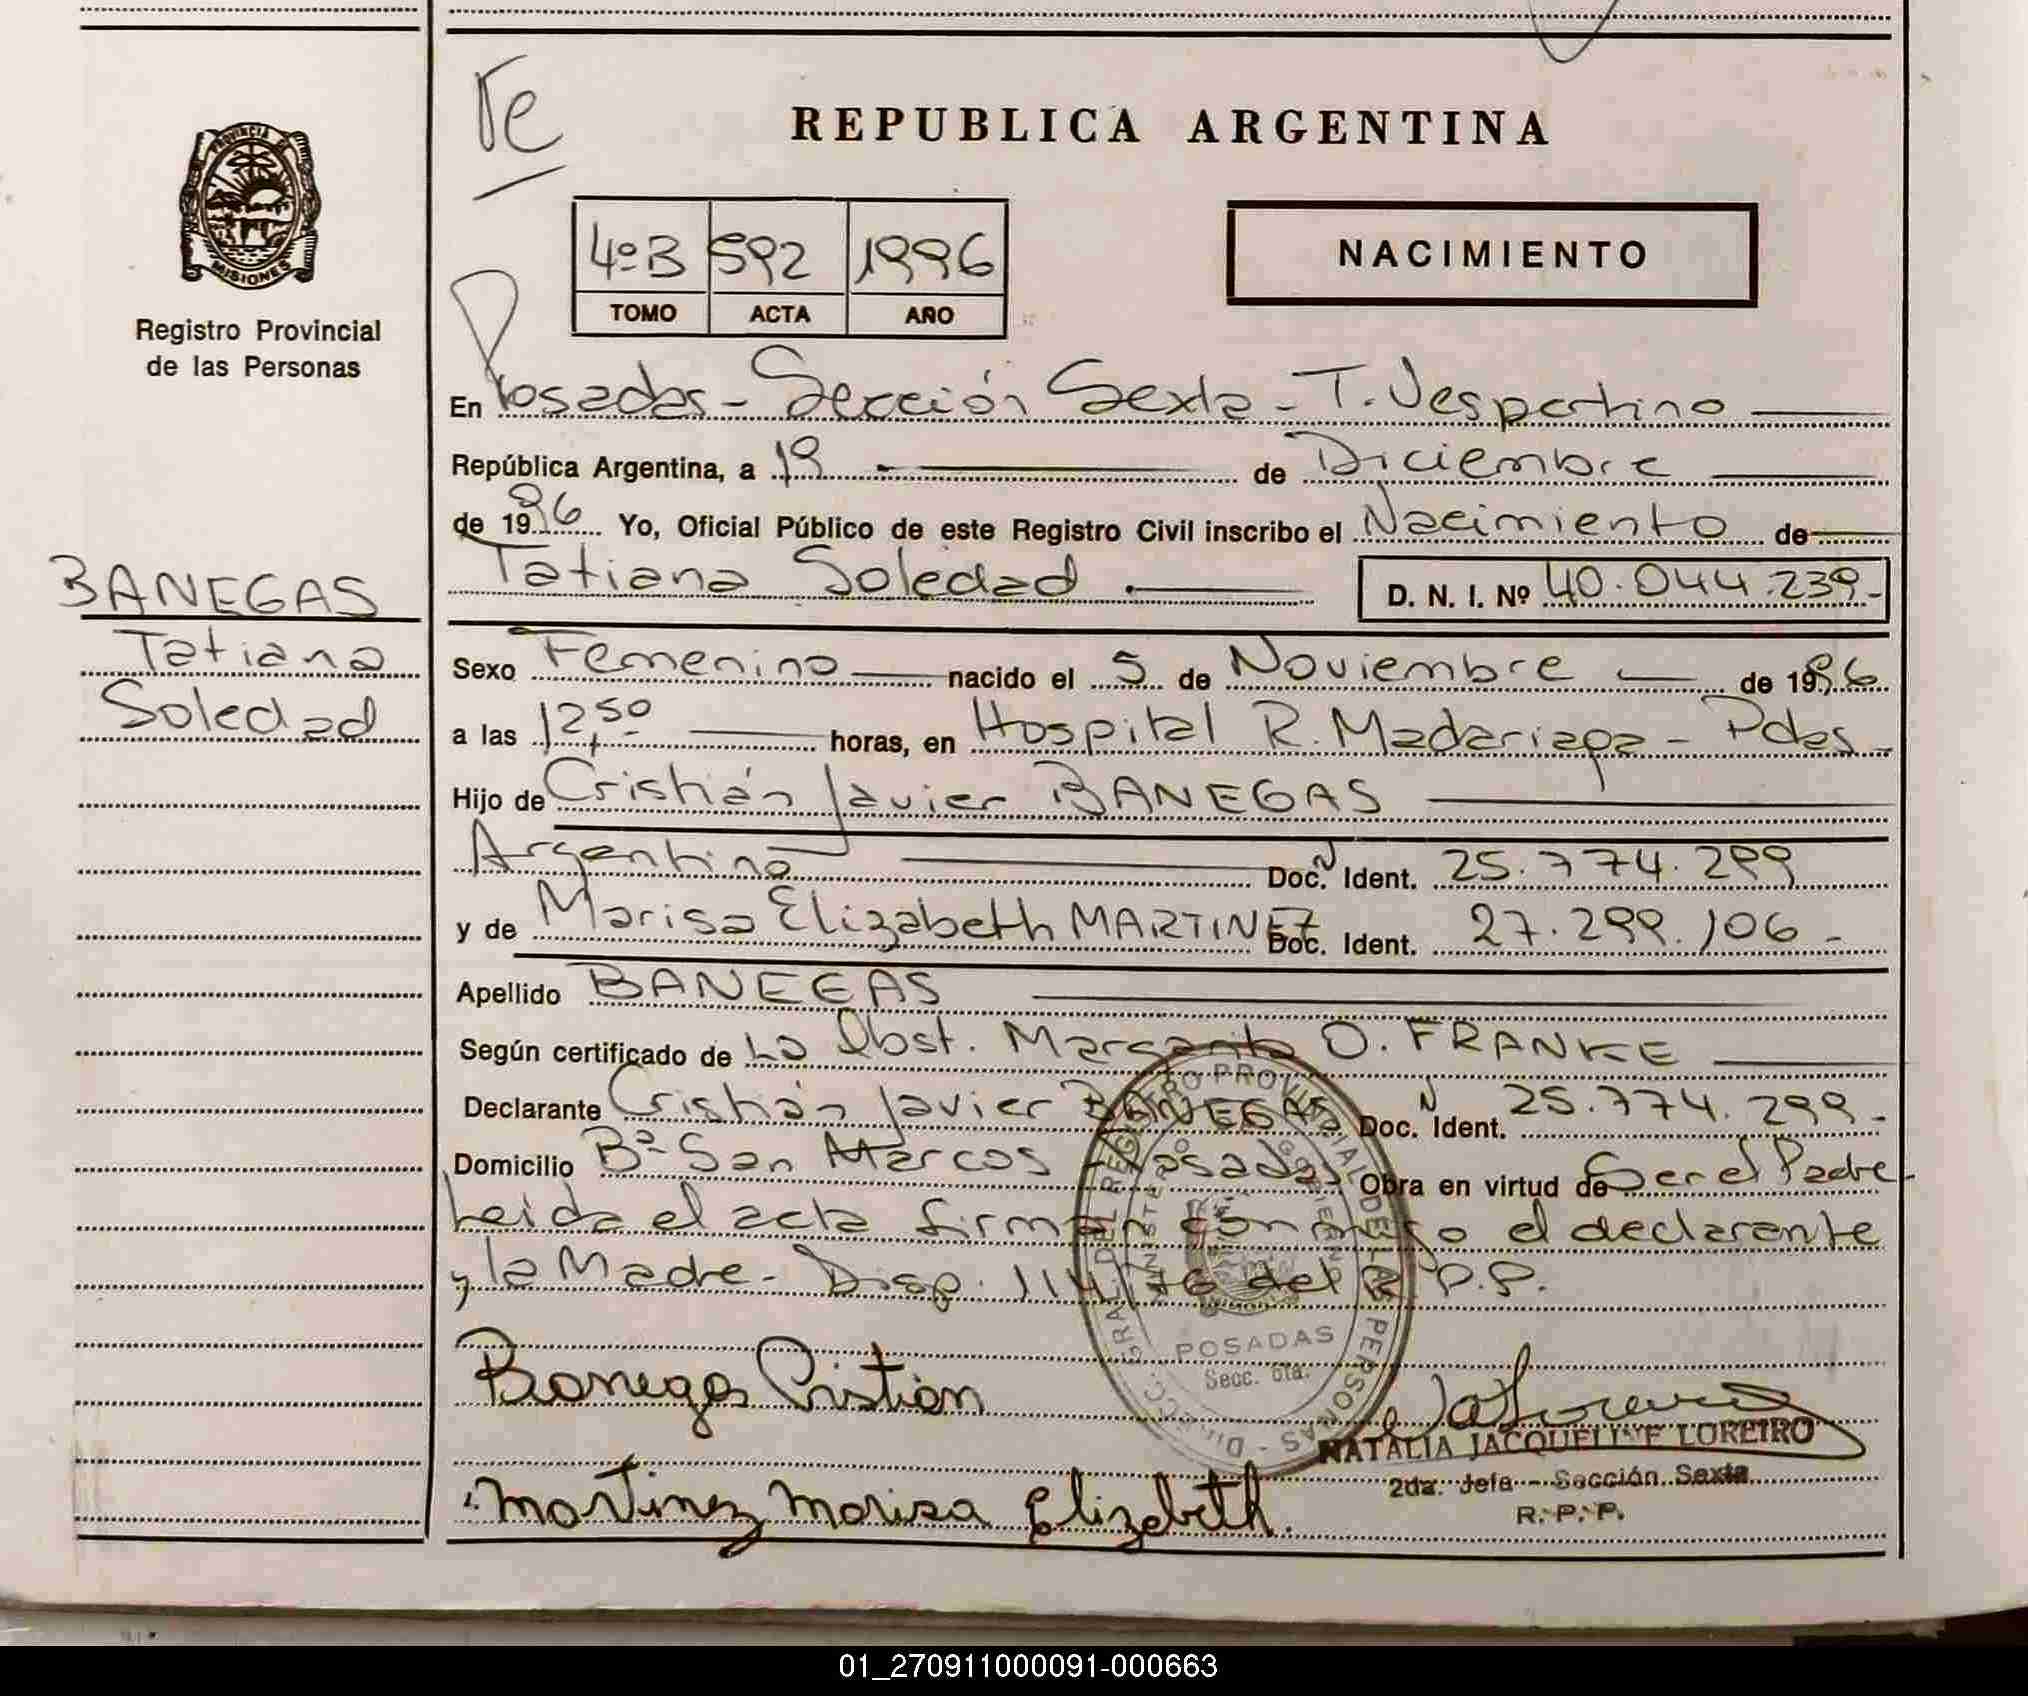 Te
REPUBLICA ARGENTINA
PROVINCIA DE
MISIONES
Registro Provincial
de las Personas
4ºB 592 1996
TOMO ACTA AÑO
NACIMIENTO
En Posadas - Sección Sexta - T. Vespertino
República Argentina, a 19 de Diciembre
de 1996 Yo, Oficial Público de este Registro Civil inscribo el Nacimiento de
Tatiana Soledad D. N. I. Nº 40.044.239-
BANEGAS
Tatiana
Soledad
Sexo Femenino nacido el 5 de Noviembre de 1996
a las 12,50 horas, en Hospital R. Madariaga - Pdas -
Hijo de Cristián Javier BANEGAS
Argentino Doc. N Ident. 25.774.299
y de Marisa Elizabeth MARTINEZ Doc. Ident. 27.299.106 -
Apellido BANEGAS
Según certificado de La Obst. Margarita O. FRANKE
Declarante Cristián Javier BANEGAS Doc. N Ident. 25.774.299-
Domicilio Bº San Marcos - Posadas Obra en virtud de Ser el Padre-
Leida el acta firman conmigo el declarante
y la Madre - Disp. 114/76 del R.P.P.
DIRECC. GRAL DEL REGISTRO PROVINCIAL DE LAS PERSONAS -
MINISTERIO GOBIERNO
POSADAS
Secc. 6ta.
Banegas Cristian
NATALIA JACQUELINE LOREIRO
2da. Jefa - Sección Sexta
R. P. P.
Martinez Marisa Elizabeth.
01_270911000091-000663